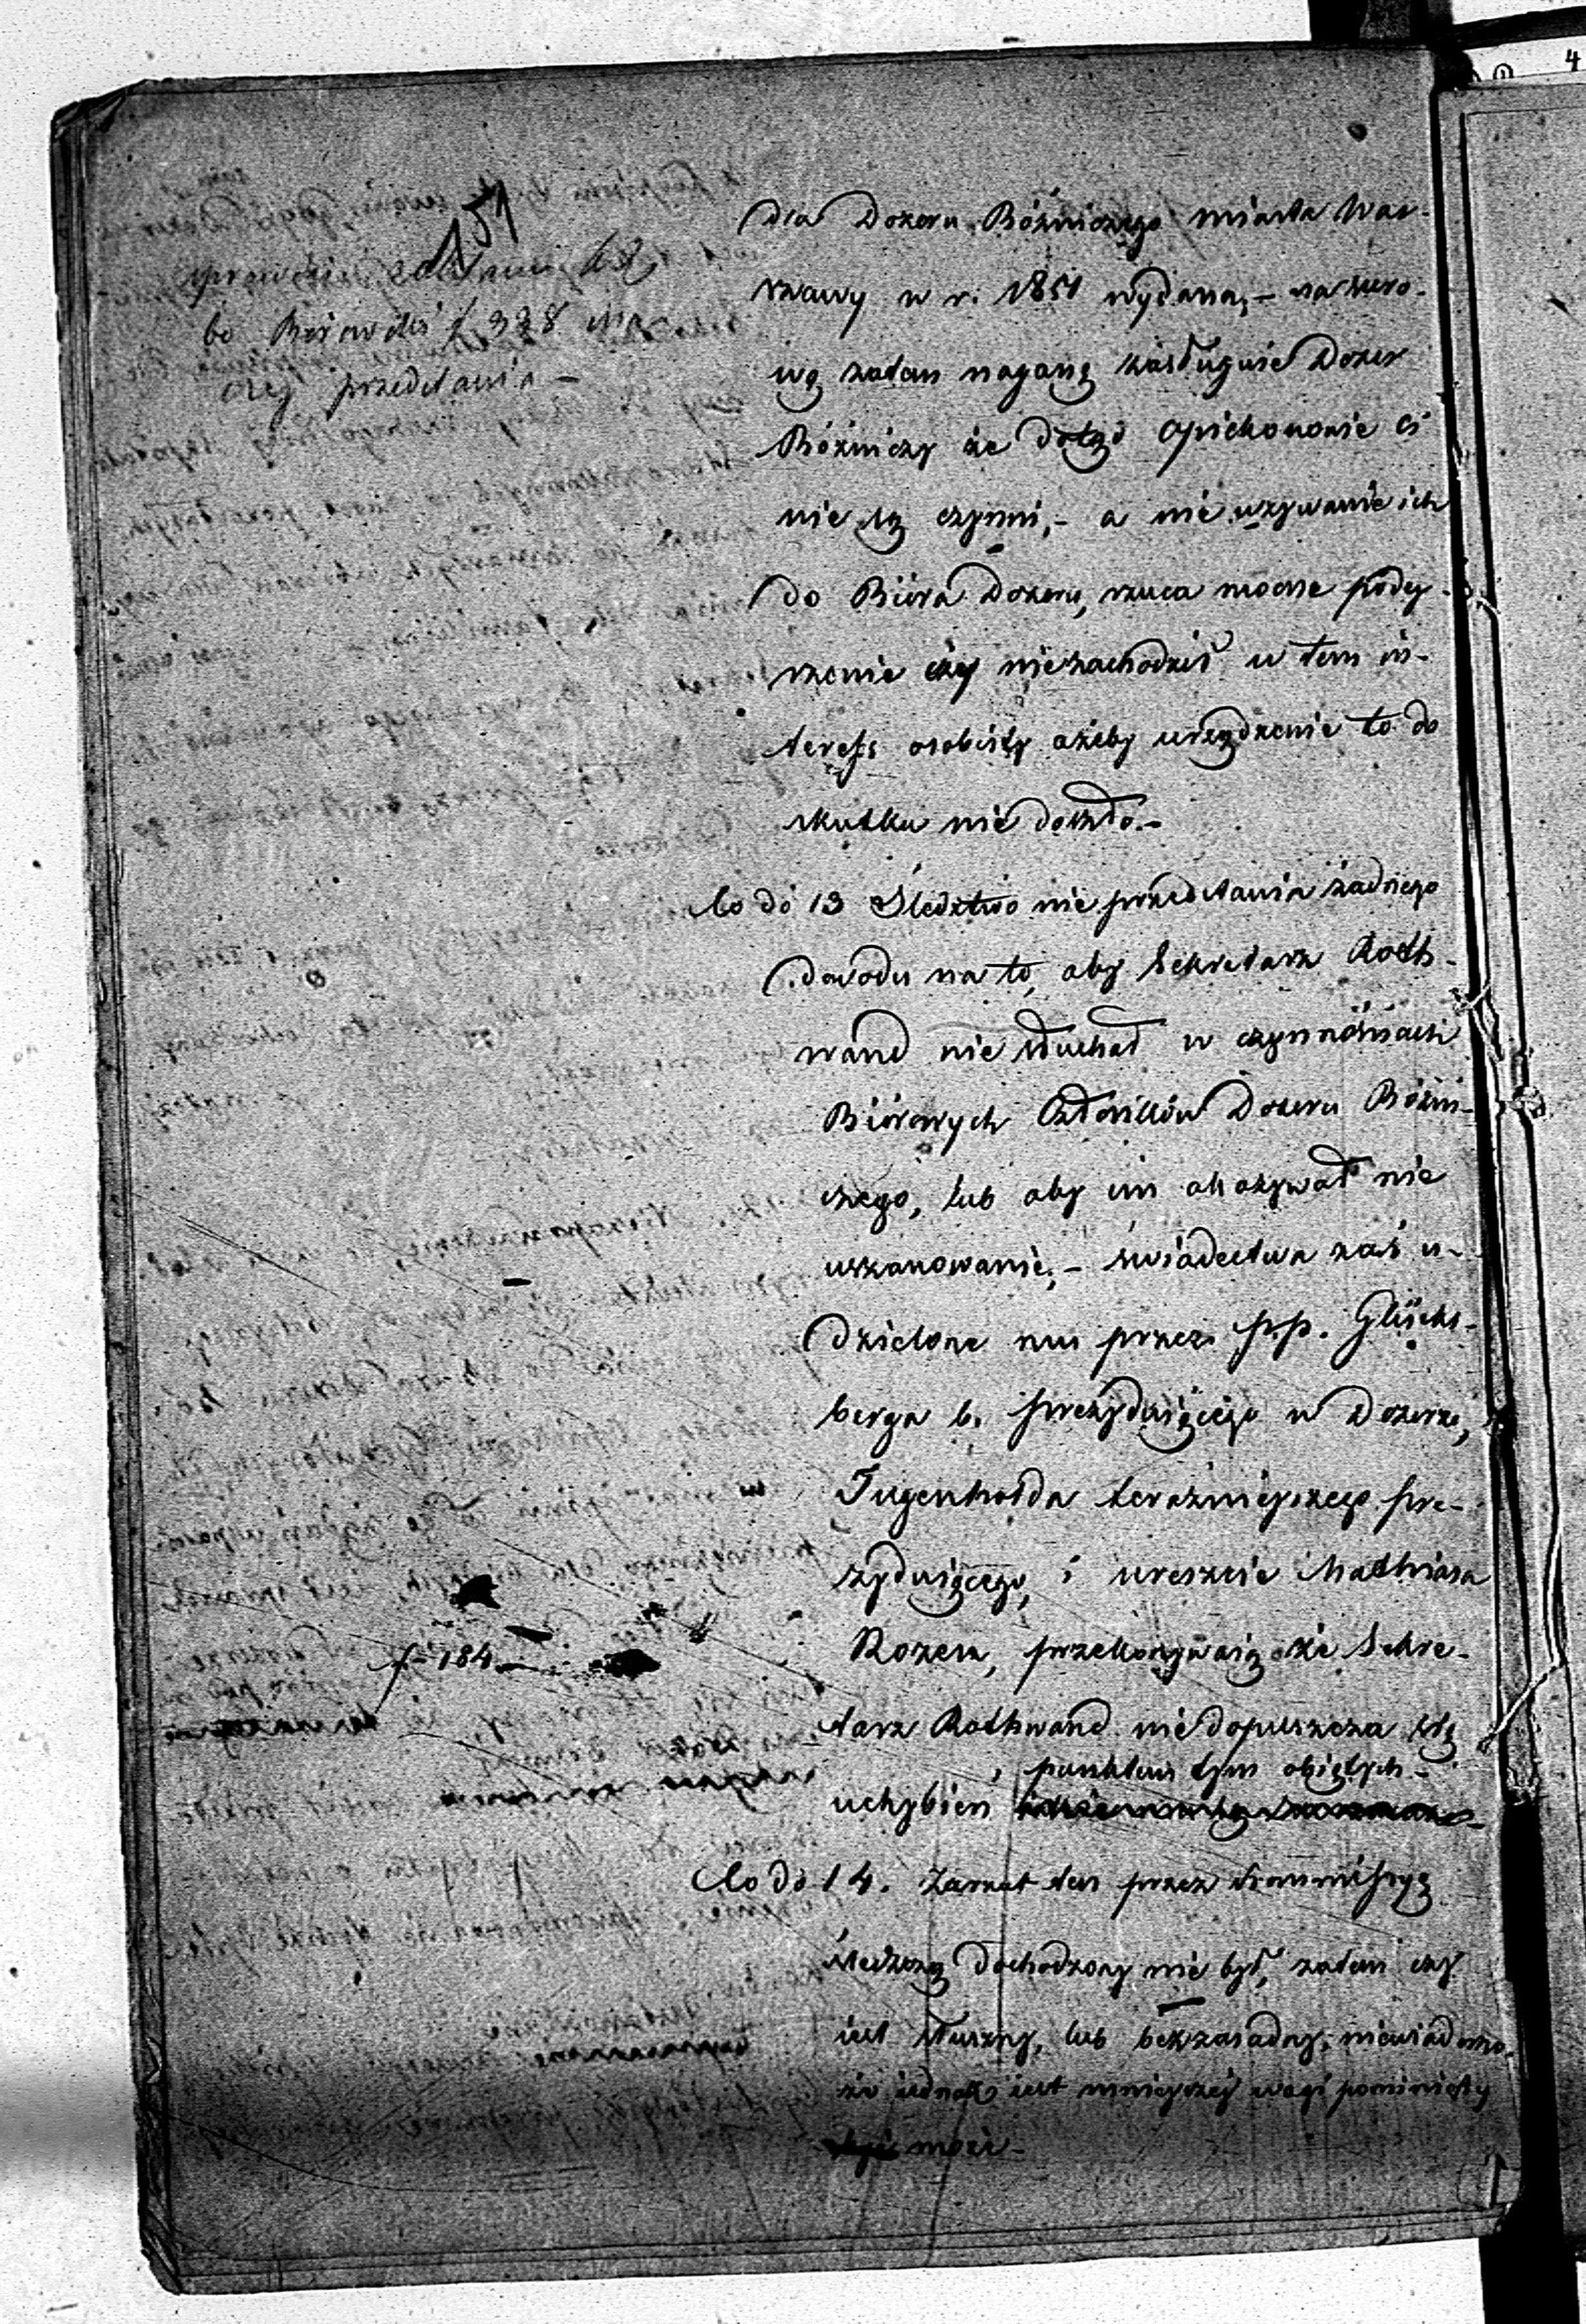 151
bo
przedstawia –
dla Dozoru Bóżniczego miasta War-
szawy w r. 1851 wydana, – na suro-
wą zatem naganę zasługuie Dozór
Bóżniczy że dotąd Opiekunowie ci
nie są czynni, – a nie używanie ich
do Biura Dozoru, rzuca mocne podey-
rzenie czy niezachodził w tem in-
teress osobisty ażeby urządzenie to do
skutku nie doszło. –
Co do 13 Śledztwo nie przedstawia żadnego
dowodu na to, aby Sekretarz Roth-
wand nie słuchał w czynnościach
Biórowych Członków Dozoru Bóżni-
czego, lub aby im okazywał nie
uszanowanie, – świadectwa zaś u-
dzielone mu przez p.p. Glücks-
berga b. prezyduiącego w Dozorze,
Tugenholda teraźnieyszego pre-
zyduiącego, i wreszcie Mathiasa
Rozen, przekonywaią że Sekre-
tarz Rothwand niedopuszcza się
punktem tym obiętych –
uchybień
f – 184 –
Co do 14. Zarzut ten przez Kommissyą
Śledczą dochodzony nie był, zatem czy
iest słuszny, lub bezzasadny, niewiadomo,
że iednak iest mnieyszéj wagi pominięty
być może –